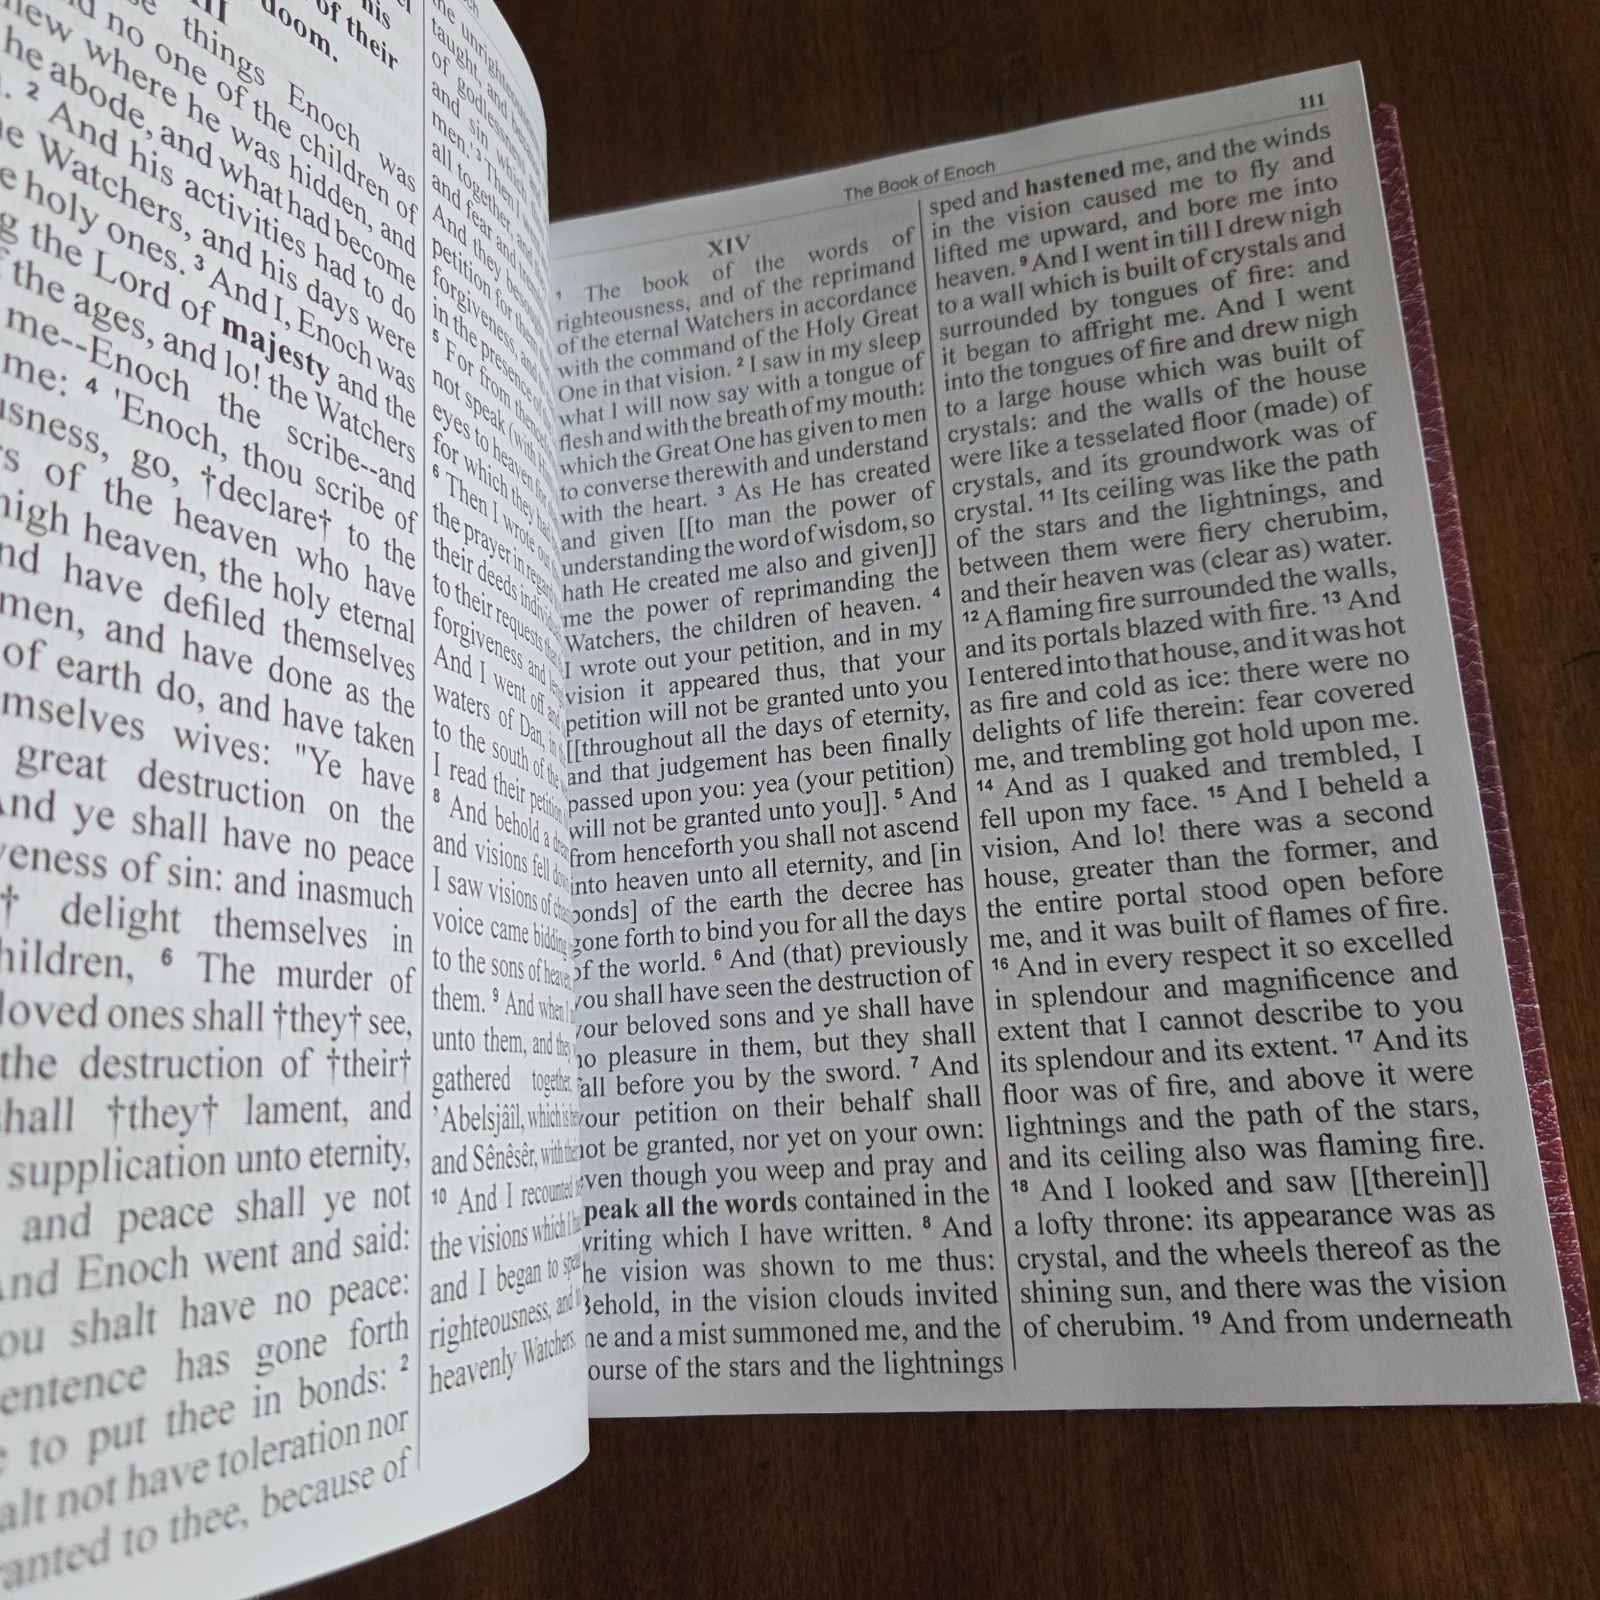 III
his
of their
doom.
things Enoch was
no one of the children of
where he was hidden, and
he abode, and what had become
2 And his activities had to do
Watchers, and his days were
holy ones. 3 And I, Enoch was
the Lord of majesty and the
the ages, and lo! the Watchers
me--Enoch the scribe--and
me: 4 'Enoch, thou scribe of
go, †declare† to the
of the heaven who have
high heaven, the holy eternal
have defiled themselves
men, and have done as the
of earth do, and have taken
wives: "Ye have
great destruction on the
And ye shall have no peace
of sin: and inasmuch
† delight themselves in
children, 6 The murder of
ones shall †they† see,
the destruction of †their†
shall †they† lament, and
supplication unto eternity,
and peace shall ye not
And Enoch went and said:
shalt have no peace:
has gone forth
to put thee in bonds: 2
not have toleration nor
to thee, because of
the
taught, and
of godlessness
and sin which
men.' 3 Then I
all together, and
and fear and
And they besought
petition for them
forgiveness, and
in the presence of
5 For from
not speak (with
eyes to heaven for
for which they had
6 Then I wrote out
the prayer in regard
their deeds
to their requests that
forgiveness and
And I went off and
waters of Dan, in
to the south of the
I read their petition
8 And behold a
and visions fell down
I saw visions of
voice came bidding
to the sons of heaven
them. 9 And when I
unto them, and they
gathered together,
'Abelsjâîl, which is
and Sênêsêr, with
10 And I recounted
the visions which I
and I began to
righteousness, and
heavenly Watchers.
The Book of Enoch
111
XIV
1 The book of the words of
righteousness, and of the reprimand
of the eternal Watchers in accordance
with the command of the Holy Great
One in that vision. 2 I saw in my sleep
what I will now say with a tongue of
flesh and with the breath of my mouth:
which the Great One has given to men
to converse therewith and understand
with the heart. 3 As He has created
and given [[to man the power of
understanding the word of wisdom, so
hath He created me also and given]]
me the power of reprimanding the
Watchers, the children of heaven. 4
I wrote out your petition, and in my
vision it appeared thus, that your
petition will not be granted unto you
[[throughout all the days of eternity,
and that judgement has been finally
passed upon you: yea (your petition)
will not be granted unto you]]. 5 And
from henceforth you shall not ascend
into heaven unto all eternity, and [in
bonds] of the earth the decree has
gone forth to bind you for all the days
of the world. 6 And (that) previously
you shall have seen the destruction of
your beloved sons and ye shall have
no pleasure in them, but they shall
fall before you by the sword. 7 And
your petition on their behalf shall
not be granted, nor yet on your own:
even though you weep and pray and
speak all the words contained in the
writing which I have written. 8 And
the vision was shown to me thus:
Behold, in the vision clouds invited
me and a mist summoned me, and the
course of the stars and the lightnings
sped and hastened me, and the winds
in the vision caused me to fly and
lifted me upward, and bore me into
heaven. 9 And I went in till I drew nigh
to a wall which is built of crystals and
surrounded by tongues of fire: and
it began to affright me. And I went
into the tongues of fire and drew nigh
to a large house which was built of
crystals: and the walls of the house
were like a tesselated floor (made) of
crystals, and its groundwork was of
crystal. 11 Its ceiling was like the path
of the stars and the lightnings, and
between them were fiery cherubim,
and their heaven was (clear as) water.
12 A flaming fire surrounded the walls,
and its portals blazed with fire. 13 And
I entered into that house, and it was hot
as fire and cold as ice: there were no
delights of life therein: fear covered
me, and trembling got hold upon me.
14 And as I quaked and trembled, I
fell upon my face. 15 And I beheld a
vision, And lo! there was a second
house, greater than the former, and
the entire portal stood open before
me, and it was built of flames of fire.
16 And in every respect it so excelled
in splendour and magnificence and
extent that I cannot describe to you
its splendour and its extent. 17 And its
floor was of fire, and above it were
lightnings and the path of the stars,
and its ceiling also was flaming fire.
18 And I looked and saw [[therein]]
a lofty throne: its appearance was as
crystal, and the wheels thereof as the
shining sun, and there was the vision
of cherubim. 19 And from underneath